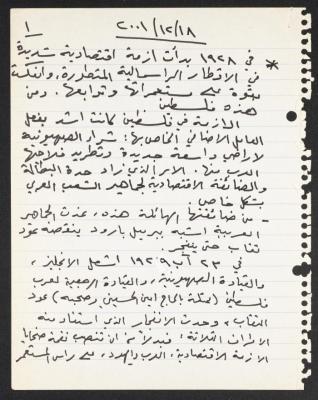 ١
٢٠٠١/١٢/١٨
* في ١٩٢٨ بدأت ازمة اقتصادية شديدة
في الاقطار الرأسمالية المتطورة، وانعكست
بقوة على مستعمراتها وتوابعها. ومن
هذه فلسطين
الازمة في فلسطين كانت اشد بفعل
العامل الاضافي الخاص بها: شراء الصهيونية
لاراضي واسعة جديدة وتطريد فلاحيها
العرب منها. الامر الذي زاد حدة البطالة
والضائقة الاقتصادية لجماهير الشعب العربي
بشكل خاص.
- من ضائقتها الهائلة هذه، غدت الجماهير
العربية اشبه ببرميل بارود ينقصه عود
ثقاب حتى ينفجر.
في ٢٣ آب ١٩٢٩ اشعل الانجليز،
والقيادة الصهيونية، والقيادة الرجعية لعرب
فلسطين (ممثلة بالحاج امين الحسيني وصحبه) عود
الثقاب، وحدث الانفجار الذي استفاد منه
الاطراف الثلاثة: فبدلا من ان تنصب نقمة ضحايا
الازمة الاقتصادية، العرب واليهود، على رأس المستعمر